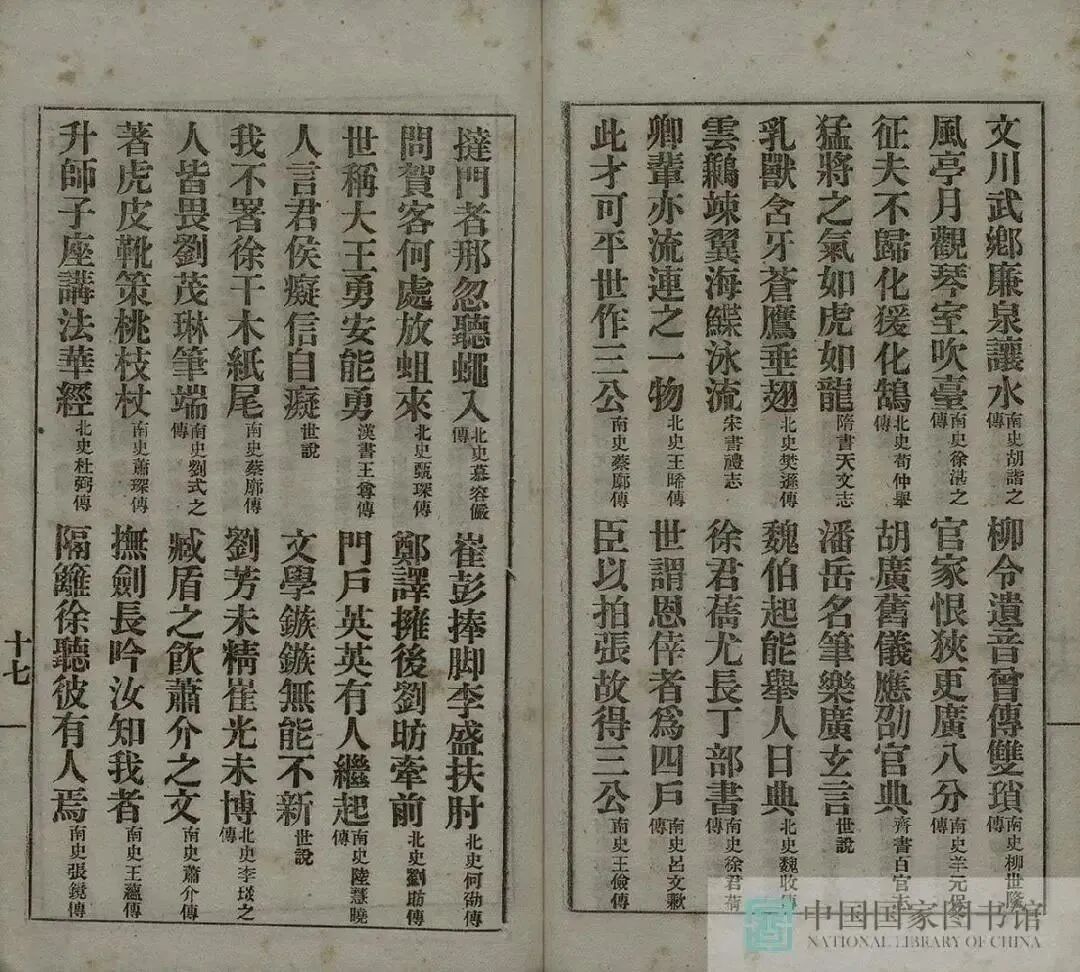 文川武鄉廉泉讓水南史胡諧之傳柳令遺音曾傳雙瑣南史柳世隆傳
風亭月觀琴室吹臺南史徐湛之傳官家恨狹更廣八分南史羊元保傳
征夫不歸化猨化鵠北史荀仲舉傳胡廣舊儀應劭官典齊書百官志
猛將之氣如虎如龍隋書天文志潘岳名筆樂廣玄言世說
乳獸含牙蒼鷹垂翅北史樊遜傳魏伯起能舉人日典北史魏收傳
雲鶼竦翼海鰈泳流宋書禮志徐君蒨尤長丁部書南史徐君蒨傳
卿輩亦流連之一物北史王晞傳世謂恩倖者為四戶南史呂文歉傳
此才可平世作三公南史蔡廓傳臣以拍張故得三公南史王儉傳
撻門者那忽聽蠅入北史慕容儼傳崔彭捧脚李盛扶肘北史何劭傳
問賀客何處放蛆來北史甄琛傳鄭譯擁後劉昉牽前北史劉昉傳
世稱大王勇安能勇漢書王尊傳門戶英英有人繼起南史陸慧曉傳
人言君侯癡信自癡世說文學鏃鏃無能不新世說
我不署徐干木紙尾南史蔡廓傳劉芳未精崔光未博北史李琰之傳
人皆畏劉茂琳筆端南史劉式之傳臧盾之飲蕭介之文南史蕭介傳
著虎皮靴策桃枝杖南史蕭琛傳撫劍長吟汝知我者南史王蘊傳
升師子座講法華經北史杜弼傳隔籬徐聽彼有人焉南史張鏡傳
十七
中国国家图书馆
NATIONAL LIBRARY OF CHINA